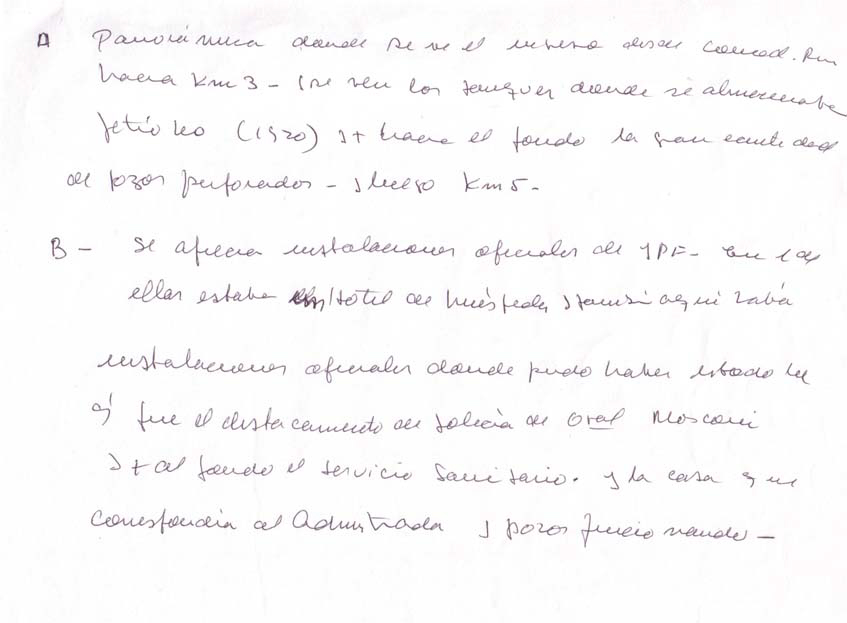 A Panorámica donde se ve el ingreso desde Comod. Riv
hacia Km 3 - (se ven los tanques donde se almacenaba
Petróleo (1920) y + hacia el fondo la gran cantidad
de pozos perforados - y luego Km 5 -
B - Se aprecia instalaciones oficiales de YPF - en
ellas estaba Hotel de huéspedes y
instalaciones oficiales donde pudo haber estado
q' fue el destacamento de Policía de Gral Mosconi
y + al fondo el servicio Sanitario. y la casa que
correspondía al y pozos funcionando -